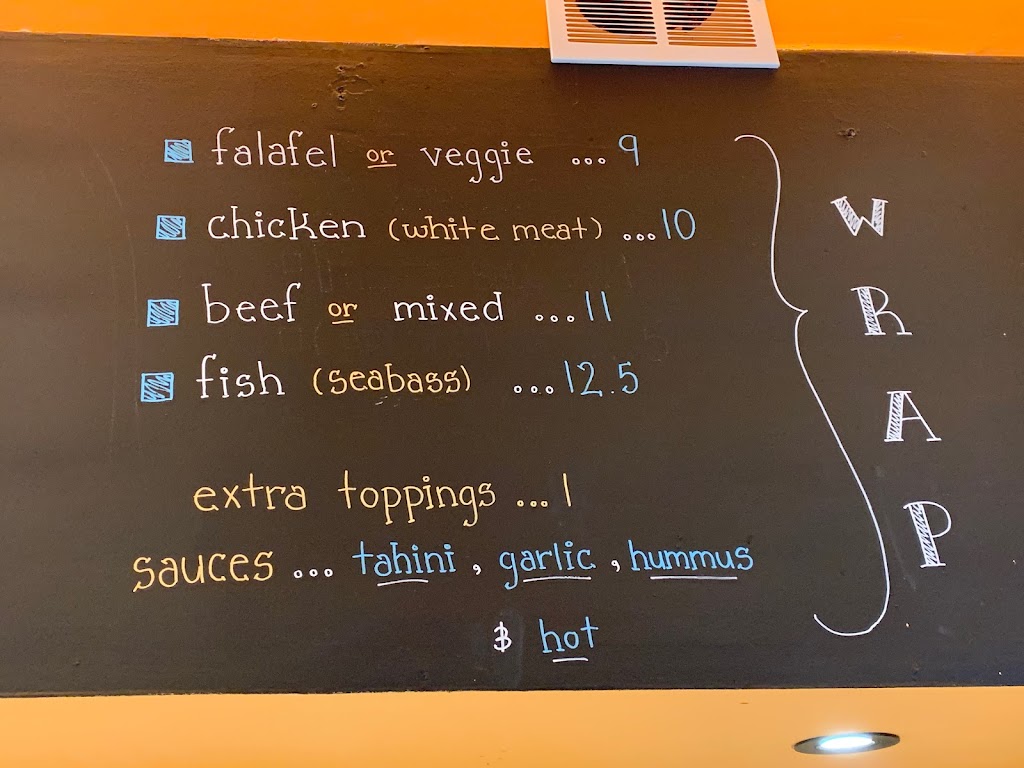 falafel or veggie ...9
chicken (white meat) ...10
beef or mixed ...11
fish (seabass) ...12.5
extra toppings ...1
sauces ... tahini, garlic, hummus
& hot
WRAP